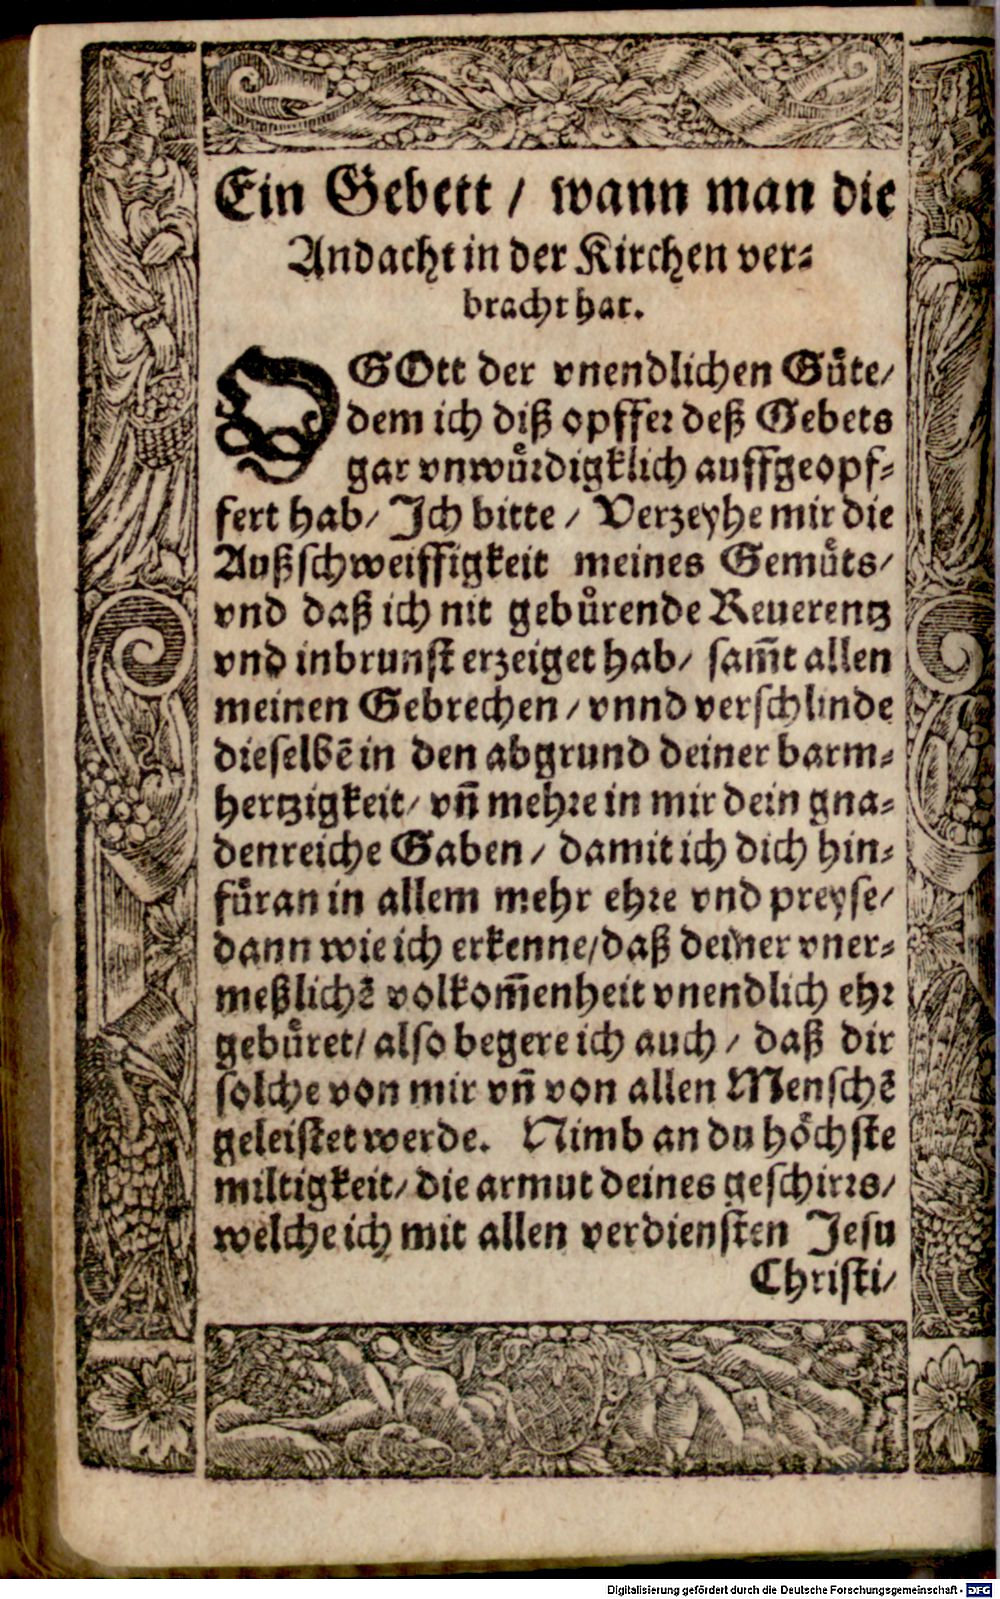 Ein Gebett / wann man die
Andacht in der Kirchen ver⸗
bracht hat.
O GOtt der vnendlichen Guͤte/
dem ich diß opffer deß Gebets
gar vnwuͤrdigklich auffgeopf⸗
fert hab/ Ich bitte / Verzeyhe mir die
Außschweiffigkeit meines Gemuͤts/
vnd daß ich nit gebuͤrende Reuerentz
vnd inbrunst erzeiget hab/ sam̃t allen
meinen Gebrechen / vnnd verschlinde
dieselbẽ in den abgrund deiner barm⸗
hertzigkeit/ vñ mehre in mir dein gna⸗
denreiche Gaben / damit ich dich hin⸗
fuͤran in allem mehr ehre vnd preyse/
dann wie ich erkenne/ daß deiner vner⸗
meßlichẽ volkom̃enheit vnendlich ehr
gebuͤret/ also begere ich auch / daß dir
solche von mir vñ von allen Menschẽ
geleistet werde. Nimb an du hoͤchste
miltigkeit/ die armut deines geschirrs/
welche ich mit allen verdiensten Jesu
Christi/
Digitalisierung gefördert durch die Deutsche Forschungsgemeinschaft - DFG